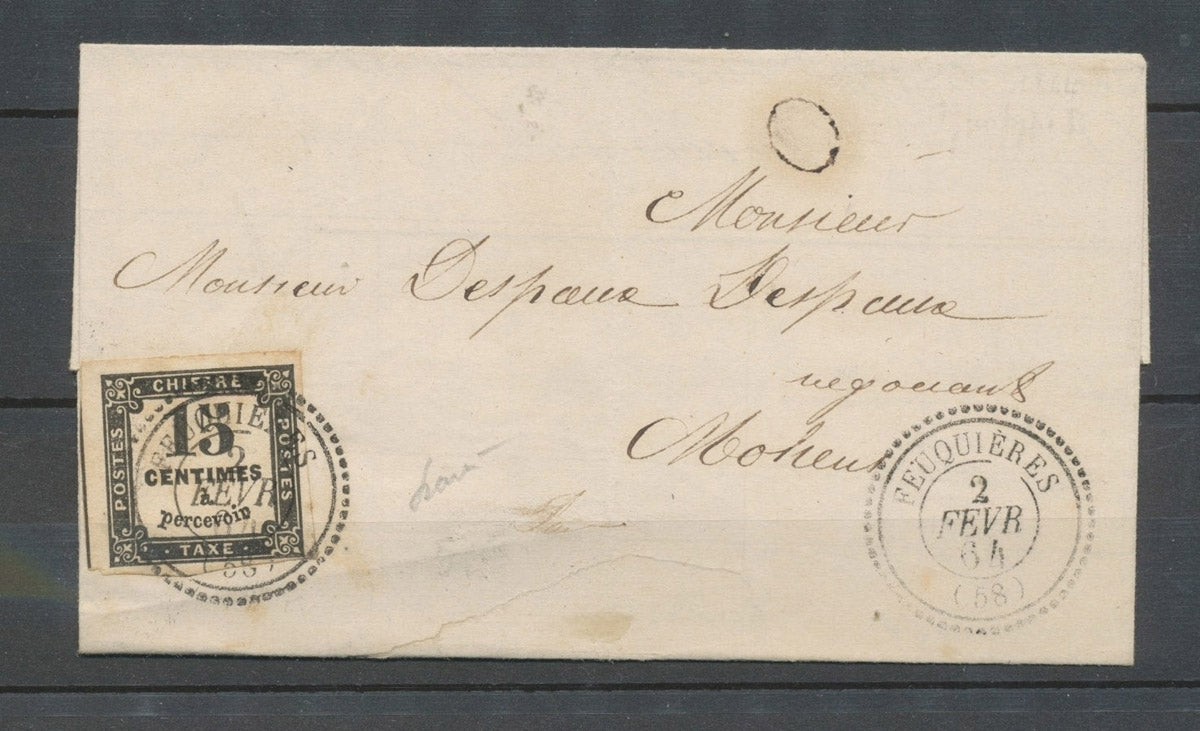 Monsieur
Monsieur Despaux Despaux
negociant
CHIFFRE
15
CENTIMES
à
percevoir
TAXE
POSTES
POSTES
FEUQUIÈRES
2
FEVR
(58)
FEUQUIÈRES
2
FEVR
64
(58)